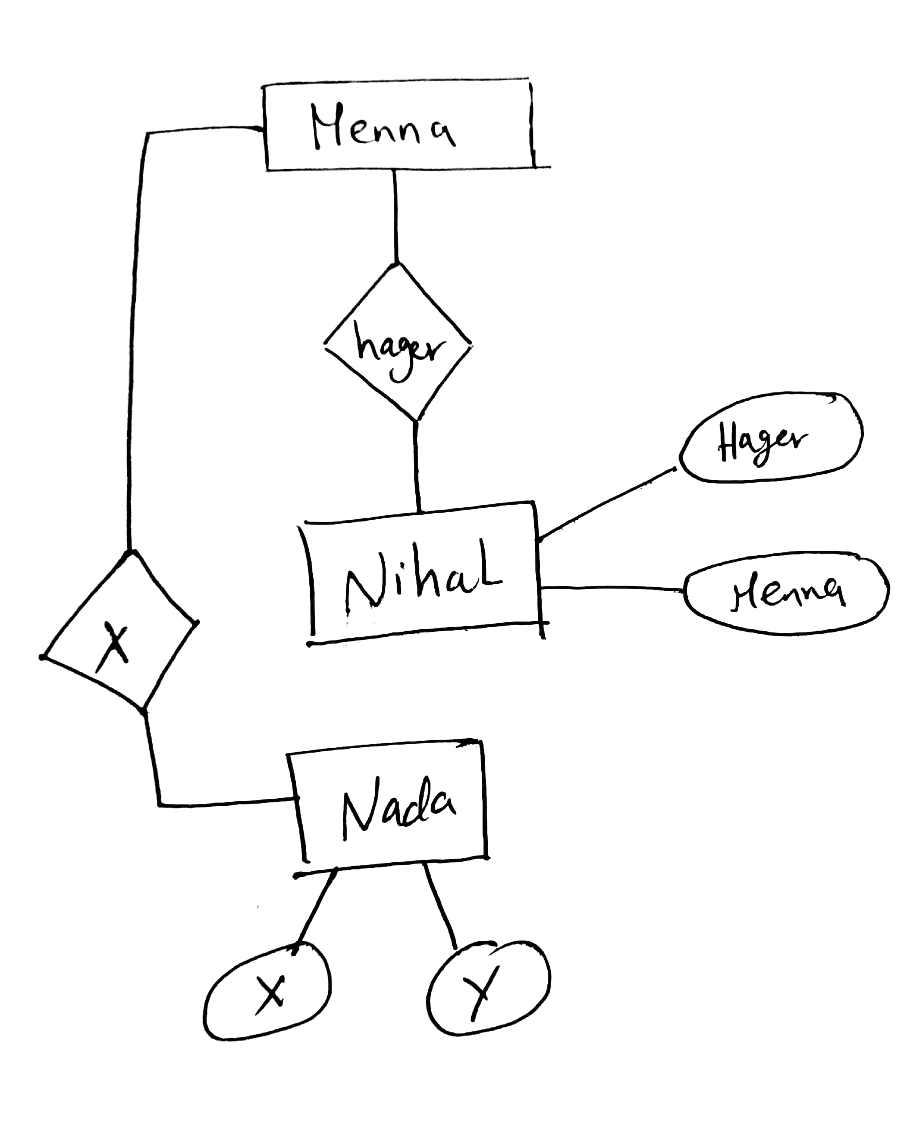 Menna
hager
Hager
Nihal
Menna
X
Nada
X
Y